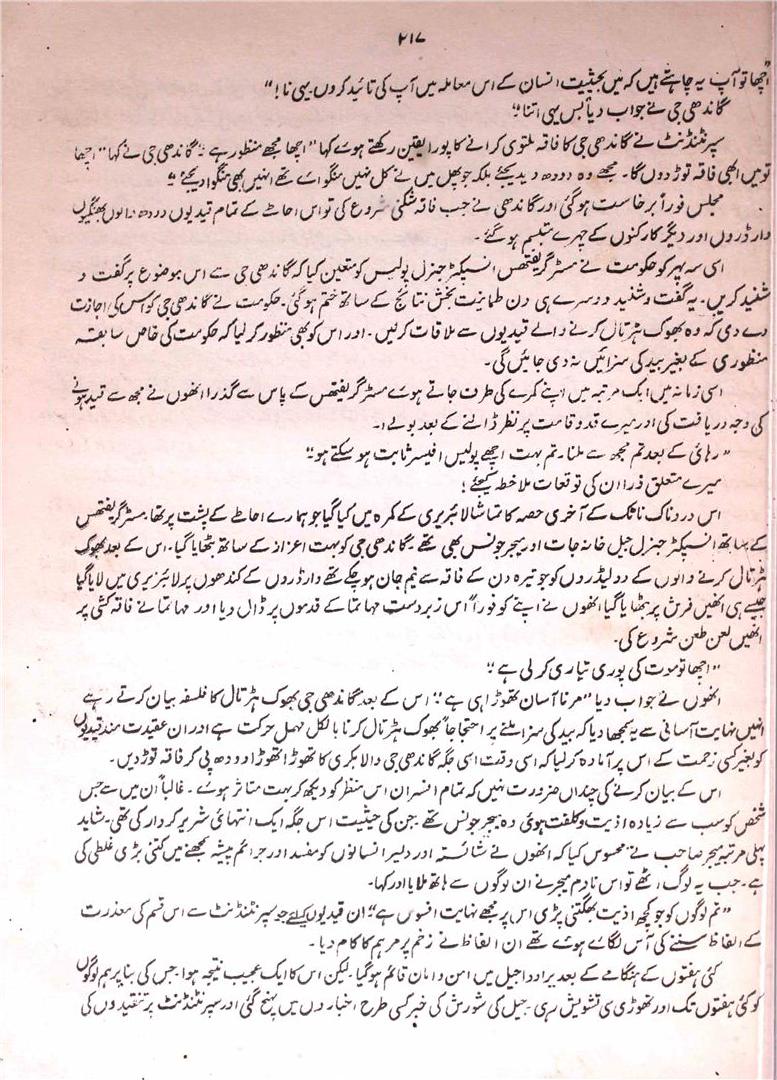 ۲۱۷
"اچھا تو آپ یہ چاہتے ہیں کہ میں بحیثیت انسان کے اس معاملہ میں آپ کی تائید کروں۔ یہی نا!"
گاندھی جی نے جواب دیا "بس یہی اتنا"۔
سپرنٹنڈنٹ نے گاندھی جی کا فاقہ ملتوی کرانے کا پورا یقین رکھتے ہوئے کہا "اچھا مجھے منظور ہے"۔ گاندھی جی نے کہا "اچھا
تو میں ابھی فاقہ توڑ دوں گا۔ مجھے وہ دودھ دیدیجئے بلکہ جو پھل میں نے کل نہیں منگوائے تھے انہیں بھی منگوا دیجئے"۔
مجلس فوراً برخاست ہوگئی اور گاندھی نے جب فاقہ شکنی شروع کی تو اس احاطے کے تمام قیدیوں دودھ والوں بھنگیوں
وارڈروں اور دیگر کارکنوں کے چہرے متبسم ہو گئے۔
اسی سہ پہر کو حکومت نے مسٹر گریفتھس انسپکٹر جنرل پولیس کو متعین کیا کہ گاندھی جی سے اس موضوع پر گفت و
شنید کریں۔ یہ گفت و شنید دوسرے ہی دن طمانیت بخش نتائج کے ساتھ ختم ہوگئی۔ حکومت نے گاندھی جی کو اس کی اجازت
دے دی کہ وہ بھوک ہڑتال کرنے والے قیدیوں سے ملاقات کرلیں۔ اور اس کو بھی منظور کر لیا کہ حکومت کی خاص سابقہ
منظوری کے بغیر بید کی سزائیں نہ دی جائیں گی۔
اسی زمانہ میں ایک مرتبہ میں اپنے کمرے کی طرف جاتے ہوئے مسٹر گریفتھس کے پاس سے گذرا انھوں نے مجھ سے قید ہونے
کی وجہ دریافت کی اور میرے قد و قامت پر نظر ڈالنے کے بعد بولے:۔
"رہائی کے بعد تم مجھ سے ملنا۔ تم بہت اچھے پولیس افیسر ثابت ہو سکتے ہو"۔
میرے متعلق ذرا ان کی توقعات ملاحظہ کیجئے!
اس دردناک ناٹک کے آخری حصہ کا تماشا لائبریری کے کمرہ میں کیا گیا جو ہمارے احاطے کے پشت پر تھا۔ مسٹر گریفتھس
کے ساتھ انسپکٹر جنرل جیل خانہ جات اور میجر جونس بھی تھے۔ گاندھی جی کو بہت اعزاز کے ساتھ بٹھایا گیا۔ اس کے بعد بھوک
ہڑتال کرنے والوں کے دو لیڈروں کو جو تیرہ دن کے فاقہ سے نیم جان ہو چکے تھے وارڈروں کے کندھوں پر لائبریری میں لایا گیا
جیسے ہی انھیں فرش پر بٹھایا گیا انھوں نے اپنے کو فوراً اس زبردست مہاتما کے قدموں پر ڈال دیا اور مہاتما نے فاقہ کشی پر
انھیں لعن طعن شروع کی۔
"اچھا تو موت کی پوری تیاری کرلی ہے"۔
انھوں نے جواب دیا "مرنا آسان تھوڑا ہی ہے"۔ اس کے بعد گاندھی جی بھوک ہڑتال کا فلسفہ بیان کرتے رہے
انہیں نہایت آسانی سے یہ سمجھا دیا کہ بید کی سزا ملنے پر احتجاجاً بھوک ہڑتال کرنا بالکل مہمل حرکت ہے اور ان عقیدت مند قیدیوں
کو بغیر کسی زحمت کے اس پر آمادہ کر لیا کہ اسی وقت اسی جگہ گاندھی جی والا بکری کا تھوڑا تھوڑا دودھ پی کر فاقہ توڑ دیں۔
اس کے بیان کرنے کی چنداں ضرورت نہیں کہ تمام افسران اس منظر کو دیکھ کر بہت متاثر ہوئے۔ غالباً ان میں سے جس
شخص کو سب سے زیادہ اذیت و کلفت ہوئی وہ میجر جونس تھے جن کی حیثیت اس جگہ ایک انتہائی شریر کردار کی تھی۔ شاید
پہلی مرتبہ میجر صاحب نے محسوس کیا کہ انھوں نے شائستہ اور دلیر انسانوں کو مفسد اور جرائم پیشہ سمجھنے میں کتنی بڑی غلطی کی
ہے۔ جب یہ لوگ اٹھے تو اس نادم میجر نے ان لوگوں سے ہاتھ ملایا اور کہا۔
"تم لوگوں کو جو کچھ اذیت بھگتنی پڑی اس پر مجھے نہایت افسوس ہے"۔ ان قیدیوں کیلئے جو سپرنٹنڈنٹ سے اس قسم کی معذرت
کے الفاظ سننے کی آس لگائے ہوئے تھے ان الفاظ نے زخم پر مرہم کا کام دیا۔
کئی ہفتوں کے ہنگامے کے بعد یرادوا جیل میں امن و امان قائم ہوگیا۔ لیکن اس کا ایک عجیب نتیجہ ہوا۔ جس کی بنا پر ہم لوگوں
کو کئی ہفتوں تک اور تھوڑی سی تشویش رہی۔ جیل کی شورش کی خبر کسی طرح اخباروں میں پہنچ گئی اور سپرنٹنڈنٹ پر تنقیدوں کی